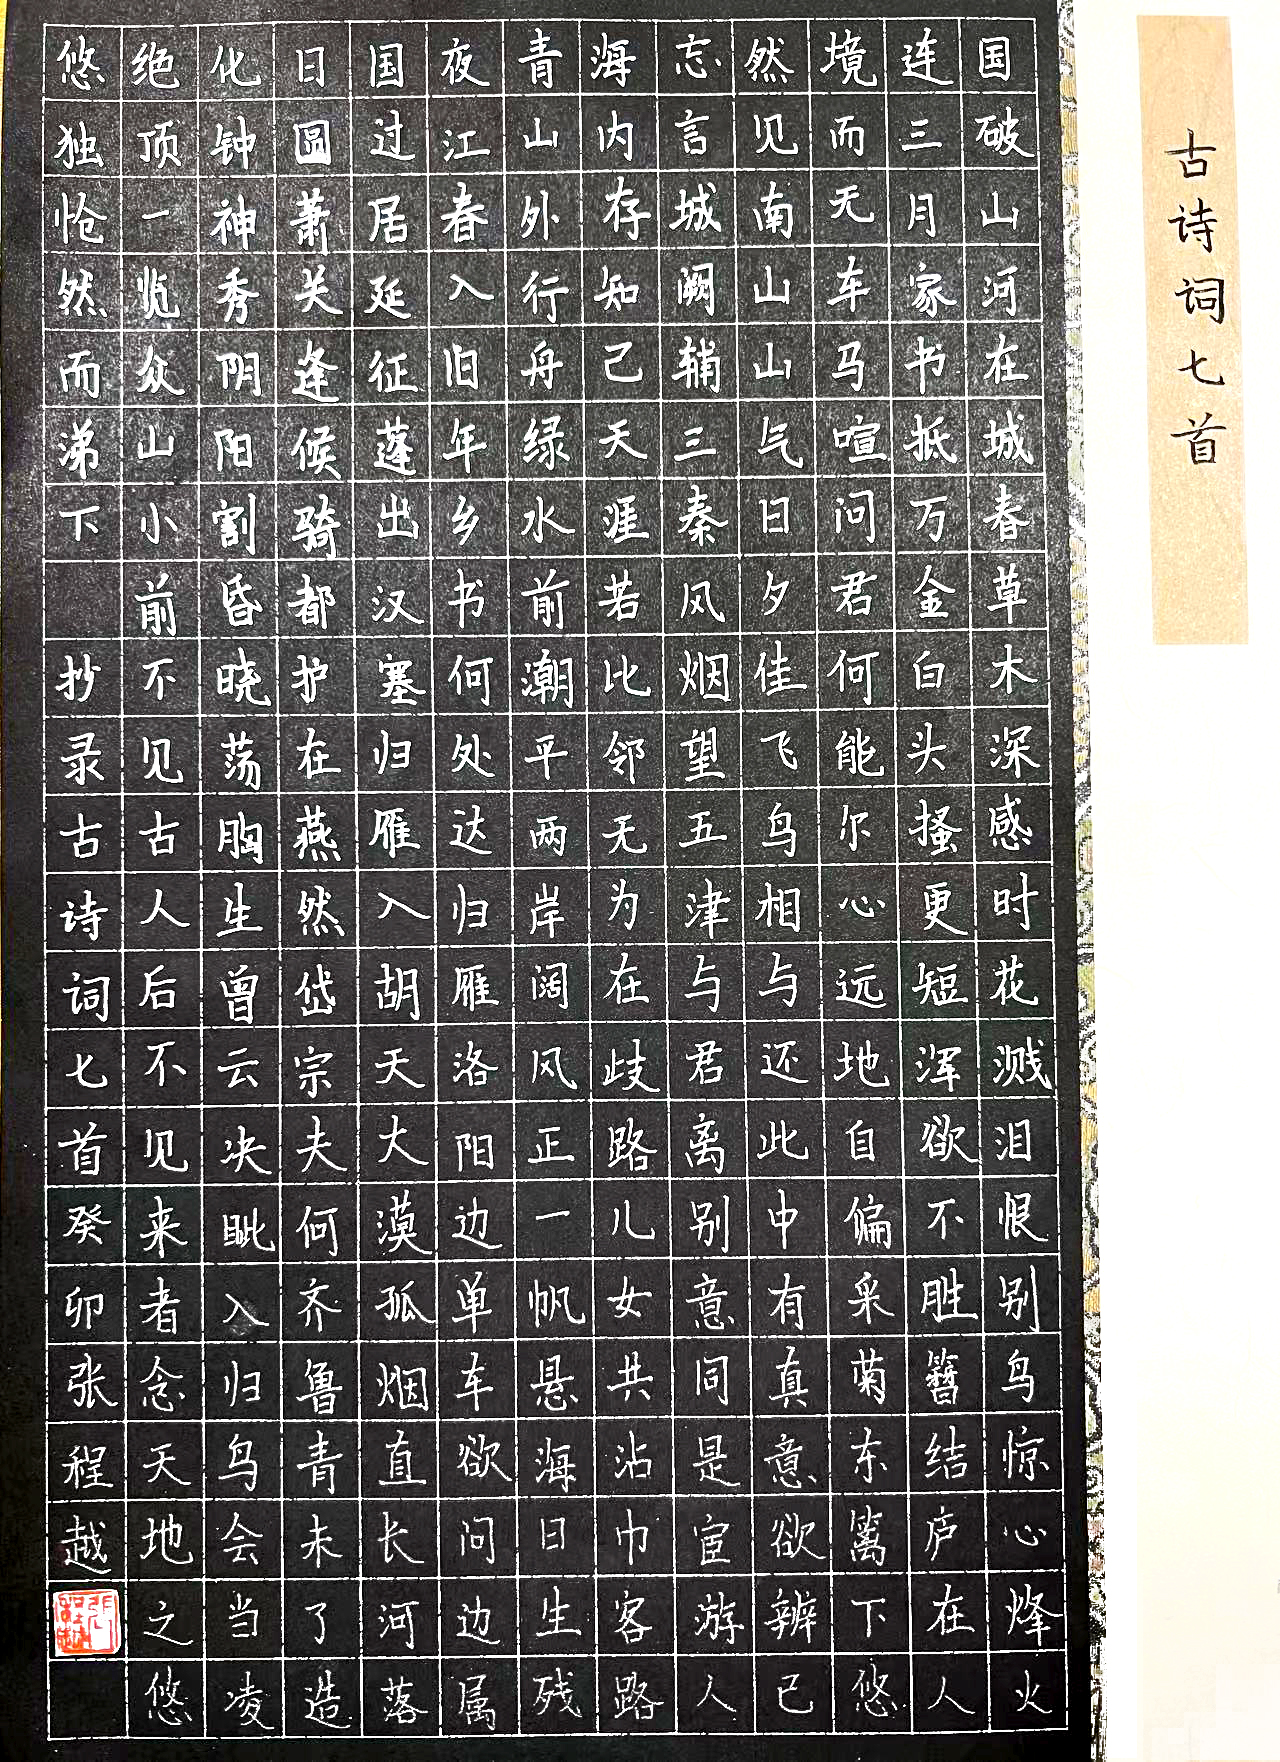 古诗词七首
国破山河在城春草木深感时花溅泪恨别鸟惊心烽火
连三月家书抵万金白头搔更短浑欲不胜簪结庐在人
境而无车马喧问君何能尔心远地自偏采菊东篱下悠
然见南山山气日夕佳飞鸟相与还此中有真意欲辨已
忘言城阙辅三秦风烟望五津与君离别意同是宦游人
海内存知己天涯若比邻无为在歧路儿女共沾巾客路
青山外行舟绿水前潮平两岸阔风正一帆悬海日生残
夜江春入旧年乡书何处达归雁洛阳边单车欲问边属
国过居延征蓬出汉塞归雁入胡天大漠孤烟直长河落
日圆萧关逢候骑都护在燕然岱宗夫何齐鲁青未了造
化钟神秀阴阳割昏晓荡胸生曾云决眦入归鸟会当凌
绝顶一览众山小前不见古人后不见来者念天地之悠
悠独怆然而涕下 抄录古诗词七首癸卯张程越